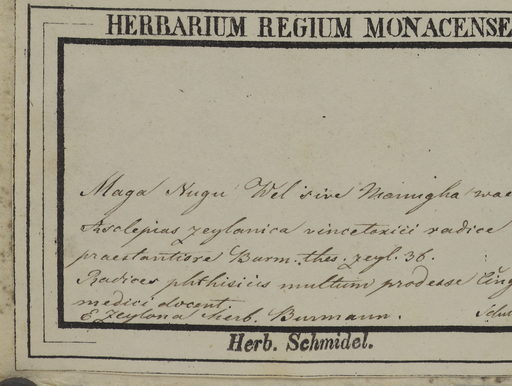 HERBARIUM REGIUM MONACENSE
Maga Nugu Wel sive Manughawae
Asclepias zeylanica vincetoxici radice
praestantiore Burm. thes. zeyl. 36.
Radices phthisicis multum prodesse Cing
medici docent.
E Zeylona herb. Burmann.
Herb. Schmidel.